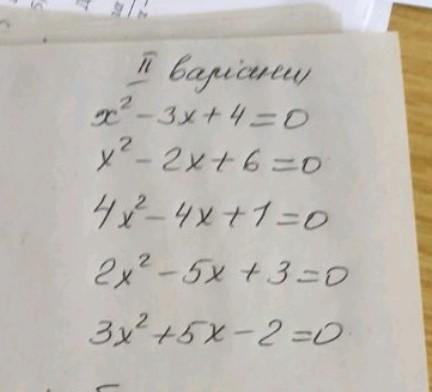 II варіант
x² - 3x + 4 = 0
x² - 2x + 6 = 0
4x² - 4x + 1 = 0
2x² - 5x + 3 = 0
3x² + 5x - 2 = 0